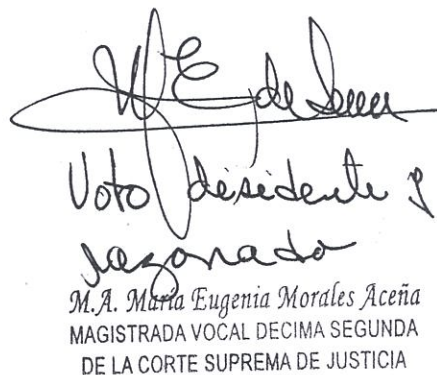 Voto disidente y
razonado
M.A. María Eugenia Morales Aceña
MAGISTRADA VOCAL DECIMA SEGUNDA
DE LA CORTE SUPREMA DE JUSTICIA